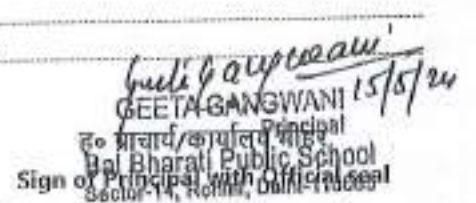 Geeta Gangwani
15/5/24
GEETA GANGWANI
Principal
ह० प्राचार्य/कार्यालय मोहर
Bal Bharati Public School
Sign of Principal with Official seal
Sector-14, Rohini, Delhi-110085